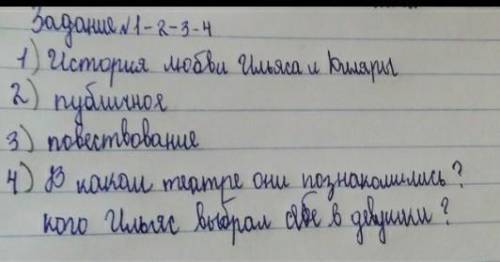 Задание №1-2-3-4
1) История любви Ильяса и Диляры
2) публичное
3) повествование
4) В каком театре они познакомились?
кого Ильяс выбрал себе в девушки?